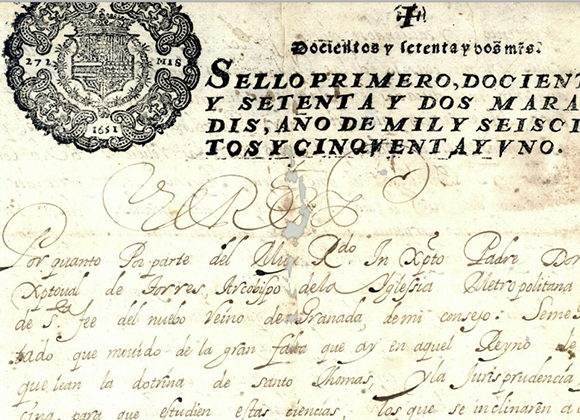 Docientos y setenta y dos mrs.
272 MIS
1651
SELLO PRIMERO, DOCIENT
Y SETENTA Y DOS MARA
DIS, AÑO DE MIL Y SEISCI
TOS Y CINQVENTA Y VNO.
Por quanto Por parte del Muy Rdo In Xpto Padre Don
Xptoual de Torres Arcobispo della Yglessia Metropolitana
de S.ta fee del nuebo Reino de Granada, de mi consejo: Seme s
tado que mouido de la gran falta que ay en aquel Reyno de
que lean la dotrina de santo Thomas, y la Jurisprudencia
cina para que estudien estas ciencias, los que se inclinaren a